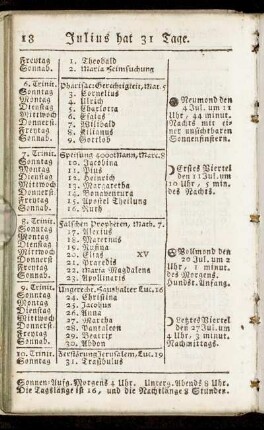 18 Julius hat 31 Tage.
Freytag 1. Theobald
Sonnab. 2. Maria Heimsuchung
6. Trinit. Pharisäer Gerechtigkeit, Mat. 5
Sonntag 3. Cornelius
Montag 4. Ulrich
Dienstag 5. Charlotta
Mittwoch 6. Esaias
Donnerst. 7. Willibald
Freytag 8. Kilianus
Sonnab. 9. Gottlob
Neumond den
4 Jul. um 11
Uhr, 44 minut.
Nachts mit ei-
ner unsichtbaren
Sonnenfinstern.
7. Trinit. Speisung 4000 Mann, Marc. 8
Sonntag 10. Jacobina
Montag 11. Pius
Dienstag 12. Heinrich
Mittwoch 13. Margaretha
Donnerst. 14. Bonaventura
Freytag 15. Apostel Theilung
Sonnab. 16. Ruth
Erstes Viertel
den 11 Jul. um
10 Uhr, 5 min.
des Nachts.
8. Trinit. Falschen Propheten, Math. 7.
Sonntag 17. Alexius
Montag 18. Maternus
Dienstag 19. Rufina
Mittwoch 20. Elias XV
Donnerst. 21. Praxedis
Freytag 22. Maria Magdalena
Sonnab. 23. Apollinaris
Vollmond den
20 Jul. um 2
Uhr, 1 min.
des Morgens.
Hundst. Anfang.
9. Trinit. Ungerecht. Haushalter Luc. 16
Sonntag 24. Christina
Montag 25. Jacobus
Dienstag 26. Anna
Mittwoch 27. Martha
Donnerst. 28. Pantaleon
Freytag 29. Beatrix
Sonnab. 30. Abdon
Letztes Viertel
den 27 Jul. um
4 Uhr, 3 minut.
Nachmittags.
10. Trinit. Zerstörung Jerusalem, Luc. 19
Sonntag 31. Trasibulus
Sonnen-Aufg. Morgens 4 Uhr. Unterg. Abends 8 Uhr.
Die Tagslänge ist 16, und die Nachtlänge 8 Stunden.